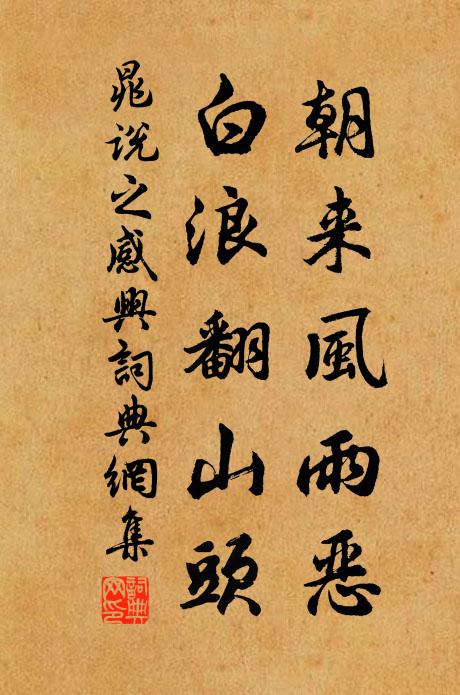 朝来風雨惡
白浪翻山頭
晁說之感興詞典網集
詞典网印